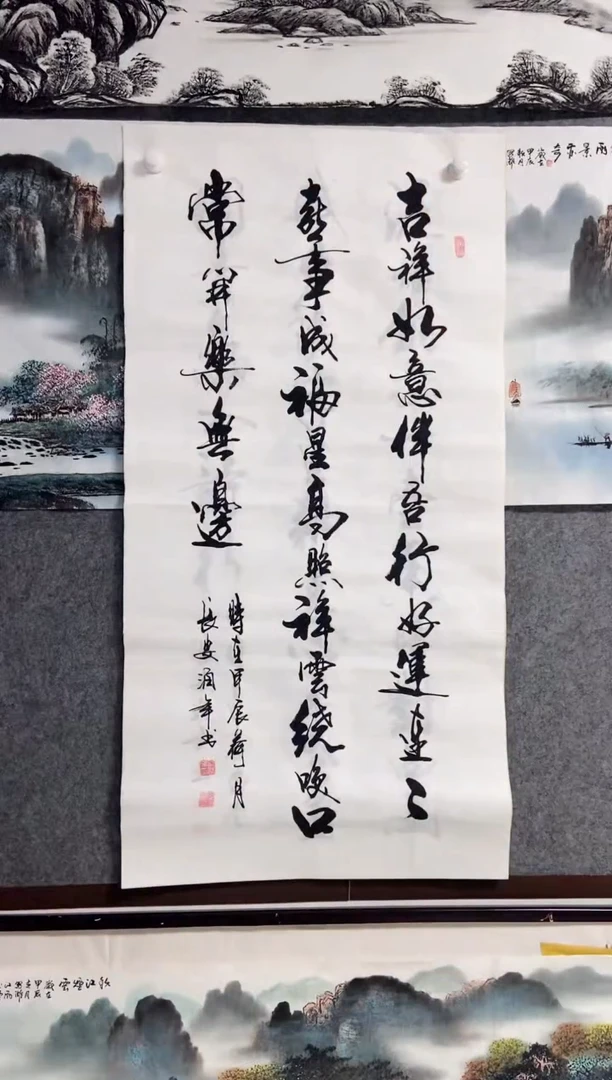 吉祥如意伴吾行好運連〻
喜事成福星高照祥雲繞笑口
常開樂無邊
時在甲辰荷月
長安涌年書